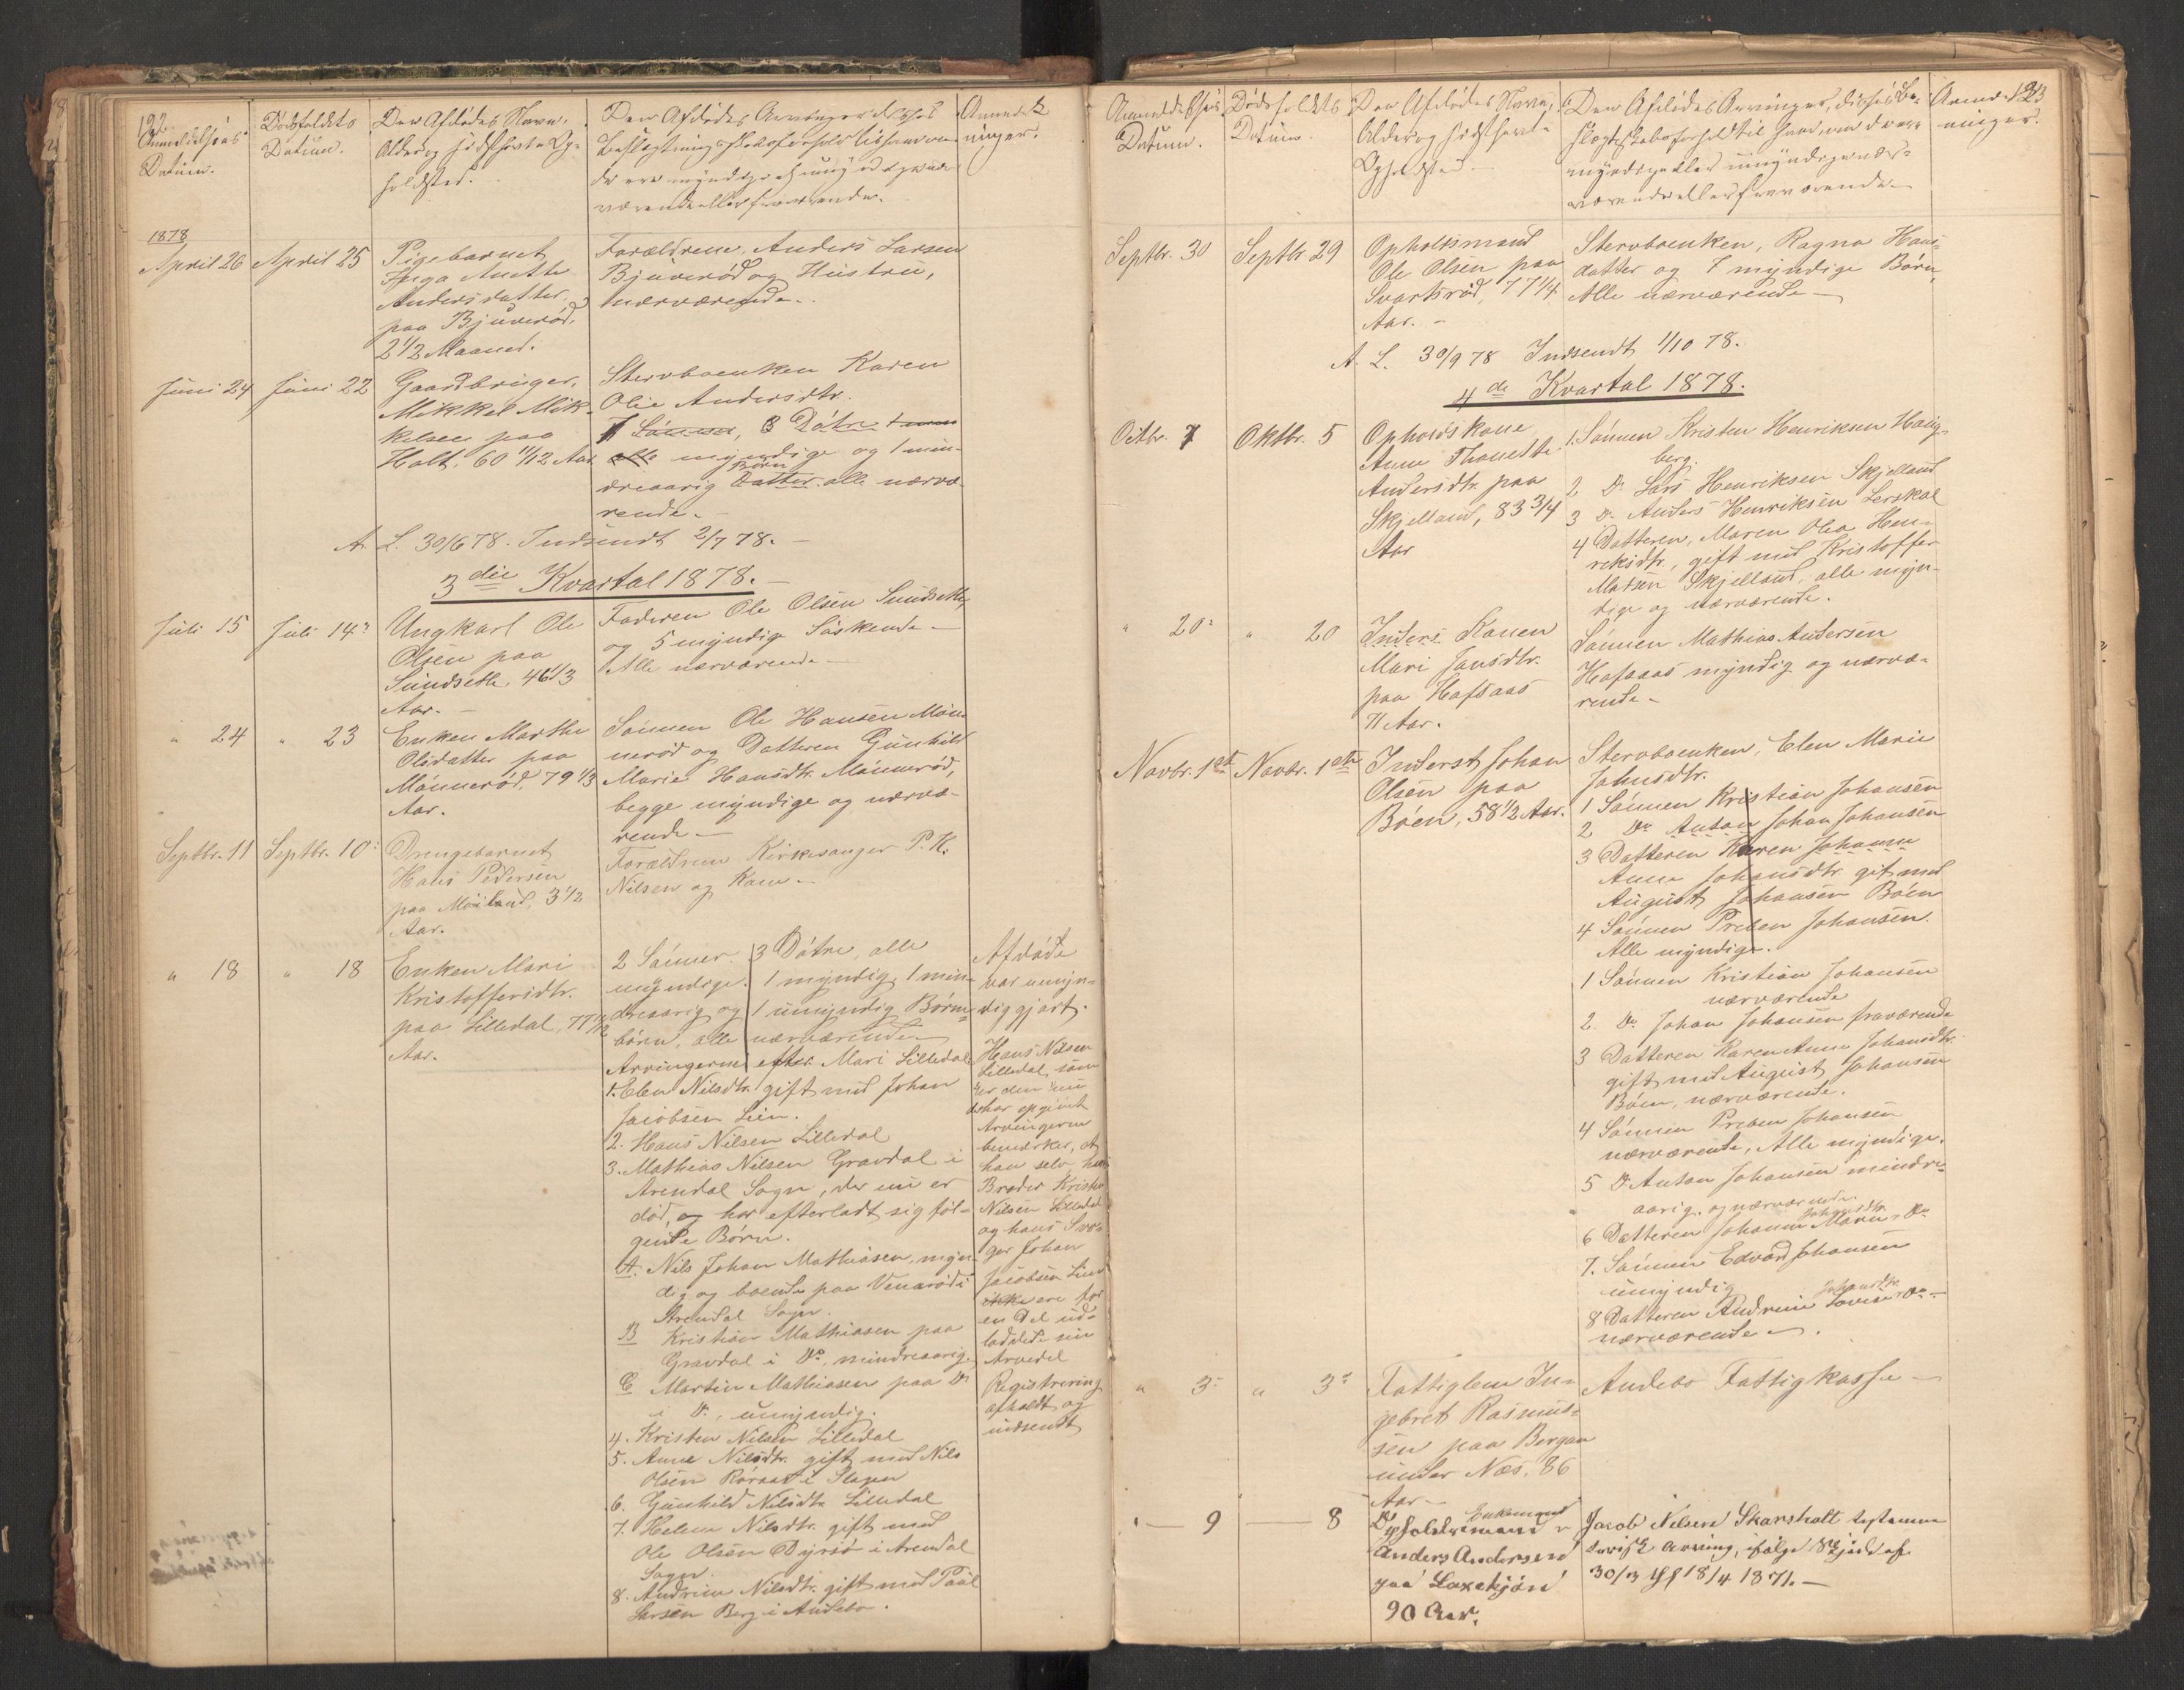 122
Anmeldelsens
Datum.
Dødsfaldets
Datum.
Den Afdødes Navn,
Alder og sidst havte Op-
holdsted.
Den Afdødes Arvinger disses
Beslægtning
værende eller fraværende.
Anmærk-
ninger.
1878
April 26
April 25
Pigebarnet
Inga Anette
Andersdatter
paa Bjuerød,
2 1/2 Maaned.
Forældrene, Anders Larsen
Bjuerød og Hustru,
nærværende.
Juni 24
Juni 22
Gaardbruger,
Mikkel Mik-
kelsen paa
Holt, 60 11/12 Aar
Stervboenken Karen
Olie Andersdtr.
7 Sønner, 3 Døtre
alle myndige og 1 min-
Børn
dreaarig Datter alle nærvæ-
rende.
A. L. 30/6 78. Indsendt 2/7 78.
3die Kvartal 1878.
Juli 15
Juli 14
Ungkarl Ole
Olsen paa
Sundseth, 46 1/3
Aar.
Faderen Ole Olsen Sundseth,
og 5 myndige Søskende
Alle nærværende
" 24
" 23
Enken Marthe
Olsdatter paa
Mønnerød, 79 1/3
Aar.
Sønnen Ole Hansen Møn-
nerød og Datteren Gunhild
Marie Hansdtr. Mønnerød,
begge myndige og nærvæ-
rende
Septbr. 11
Septbr. 10
Drengebarnet
Hans Pedersen
paa Møiland, 3 1/2
Aar.
Forældrene Kirkesanger P. H.
Nilsen og Kone
" 18
" 18
Enken Mari
Kristoffersdtr.
paa Lilledal, 77 1/12
Aar.
2 Sønner 3 Døtre, alle
myndige. 1 myndig, 1 min-
dreaarig og 1 umyndig Børne-
børn, alle nærværende
Arvingerne efter Mari Lilledal
1. Elen Nilsdtr. gift med Johan
Jacobsen Lien.
2. Hans Nilsen Lilledal
3. Mathias Nilsen Gravdal i
Arendal Sogn, der nu er
død, og har efterladt sig føl-
gende Børn.
A. Nils Johan Mathiasen, myn-
dig og boende paa Venerød i
Arendal Sogn.
B Kristian Mathiasen paa
Gravdal i Do, mindreaarig
C Martin Mathiasen paa Do
i Do, umyndig.
4. Kristen Nilsen Lilledal
5. Anne Nilsdtr. gift med Nils
Olsen Røraas i Slagen
6. Gunhild Nilsdtr Lilledal
7. Helene Nilsdtr. gift med
Ole Olsen Dyrsø i Arendal
Sogn.
8. Andrine Nilsdtr. gift med Paul
Larsen Berg i Andebo.
Afdøde
var umyn-
diggjort.
Hans Nilsen
Lilledal, som
er den
der har opgivet
Arvingerne
bemærker, at
han selv, hans
Broder Kristen
Nilsen Lilledal
og hans Svo-
ger Johan
Jacobsen Lien
ikke ere for
en Del ud-
betalte sin
Arvedel
Registrering
afholdt og
indsendt
Anmeldelsens
Datum.
Dødsfaldets
Datum
Den Afdødes Navn,
Alder og sidst havte
Opholdsted.
Den Afdødes Arvinger, disses Be-
slægtskabsforhold til
myndige eller umyndige nær-
værende eller fraværende.
Anmærk-
ninger.
123
Septbr. 30
Septbr 29
Opholdsmand
Ole Olsen paa
Svartsrød, 77 1/4
Aar.
Stervboenken, Ragna Hans-
datter og 7 myndige Børn,
Alle nærværende
A. L. 30/9 78 Indsendt 1/10 78.
4de Kvartal 1878.
Octbr. 7
Oktbr. 5
Opholdskone
Anne Thonette
Andersdtr. paa
Skjelland, 83 3/4
Aar
1. Sønnen Kristen Henriksen Haug-
berg.
2 Do Lars Henriksen Skjelland
3 Do Anders Henriksen Lerskal
4 Datteren, Maren Olea Hen-
riksdtr, gift med Kristoffer
Matsen Skjelland, alle myn-
dige og nærværende.
" 20
" 20
Inders. Konen
Mari Jansdtr.
paa Hafsaas
71 Aar.
Sønnen Mathias Andersen
Hafsaas myndig og nærvæ-
rende
Novbr. 1st
Novbr. 1ste
Inderst Johan
Olsen paa
Bøen, 58 1/2 Aar.
Stervboenken, Elen Marie
Johnsdtr.
1 Sønnen Kristian Johansen
2 Do Anton Johan Johansen
3 Datteren Karen Johanne
Anne Johansdtr. gift med
August Johansen Bøen
4 Sønnen Preben Johansen.
Alle myndige.
1 Sønnen Kristian Johansen
nærværende
2. Do Johan Johansen fraværende
3 Datteren Karen Anne Johansdtr.
gift med August Johansen
Bøen, nærværende.
4 Sønnen Preben Johansen
nærværende, Alle myndige.
5 Do Anton Johansen mindre-
aarig og nærværende
Johansdtr.
6 Datteren Johanne Maren, Do
7. Sønnen Edvard Johansen
umyndig
Johansdtr.
8 Datteren Andrine Lovise Do
nærværende
" 3
" 3
Fattiglem In-
gebret Rasmus-
sen paa Bergan
under Næs, 86
Aar
Andebo Fattigkasse
" — 9
— 8
Enkemand
Do Opholdsmand
Anders Andersen
paa Laxekjøn
90 Aar.
Jacob Nilsen Skarsholt testamen-
tarisk Arving, ifølge Skjøde af
30/3 tgl 18/4 1871.